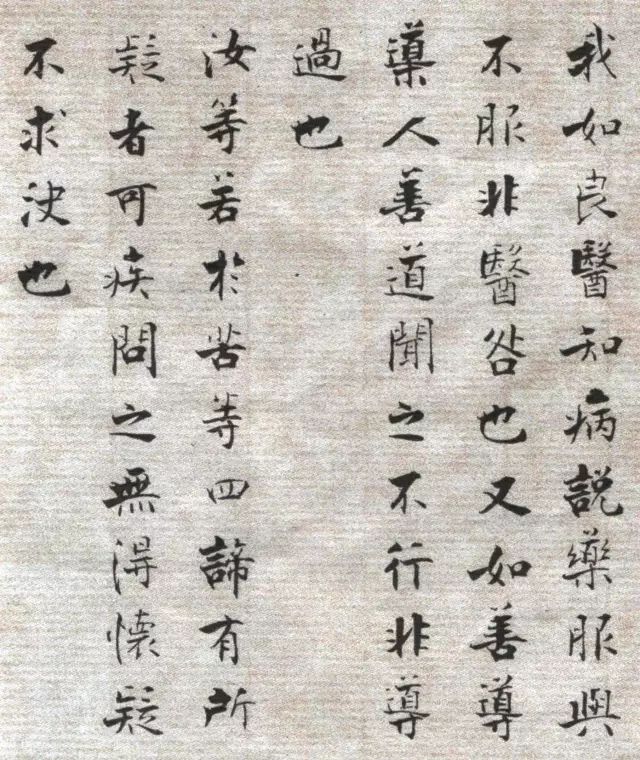 我如良醫知病說藥服與
不服非醫咎也又如善導
導人善道聞之不行非導
過也
汝等若於苦等四諦有所
疑者可疾問之無得懷疑
不求決也